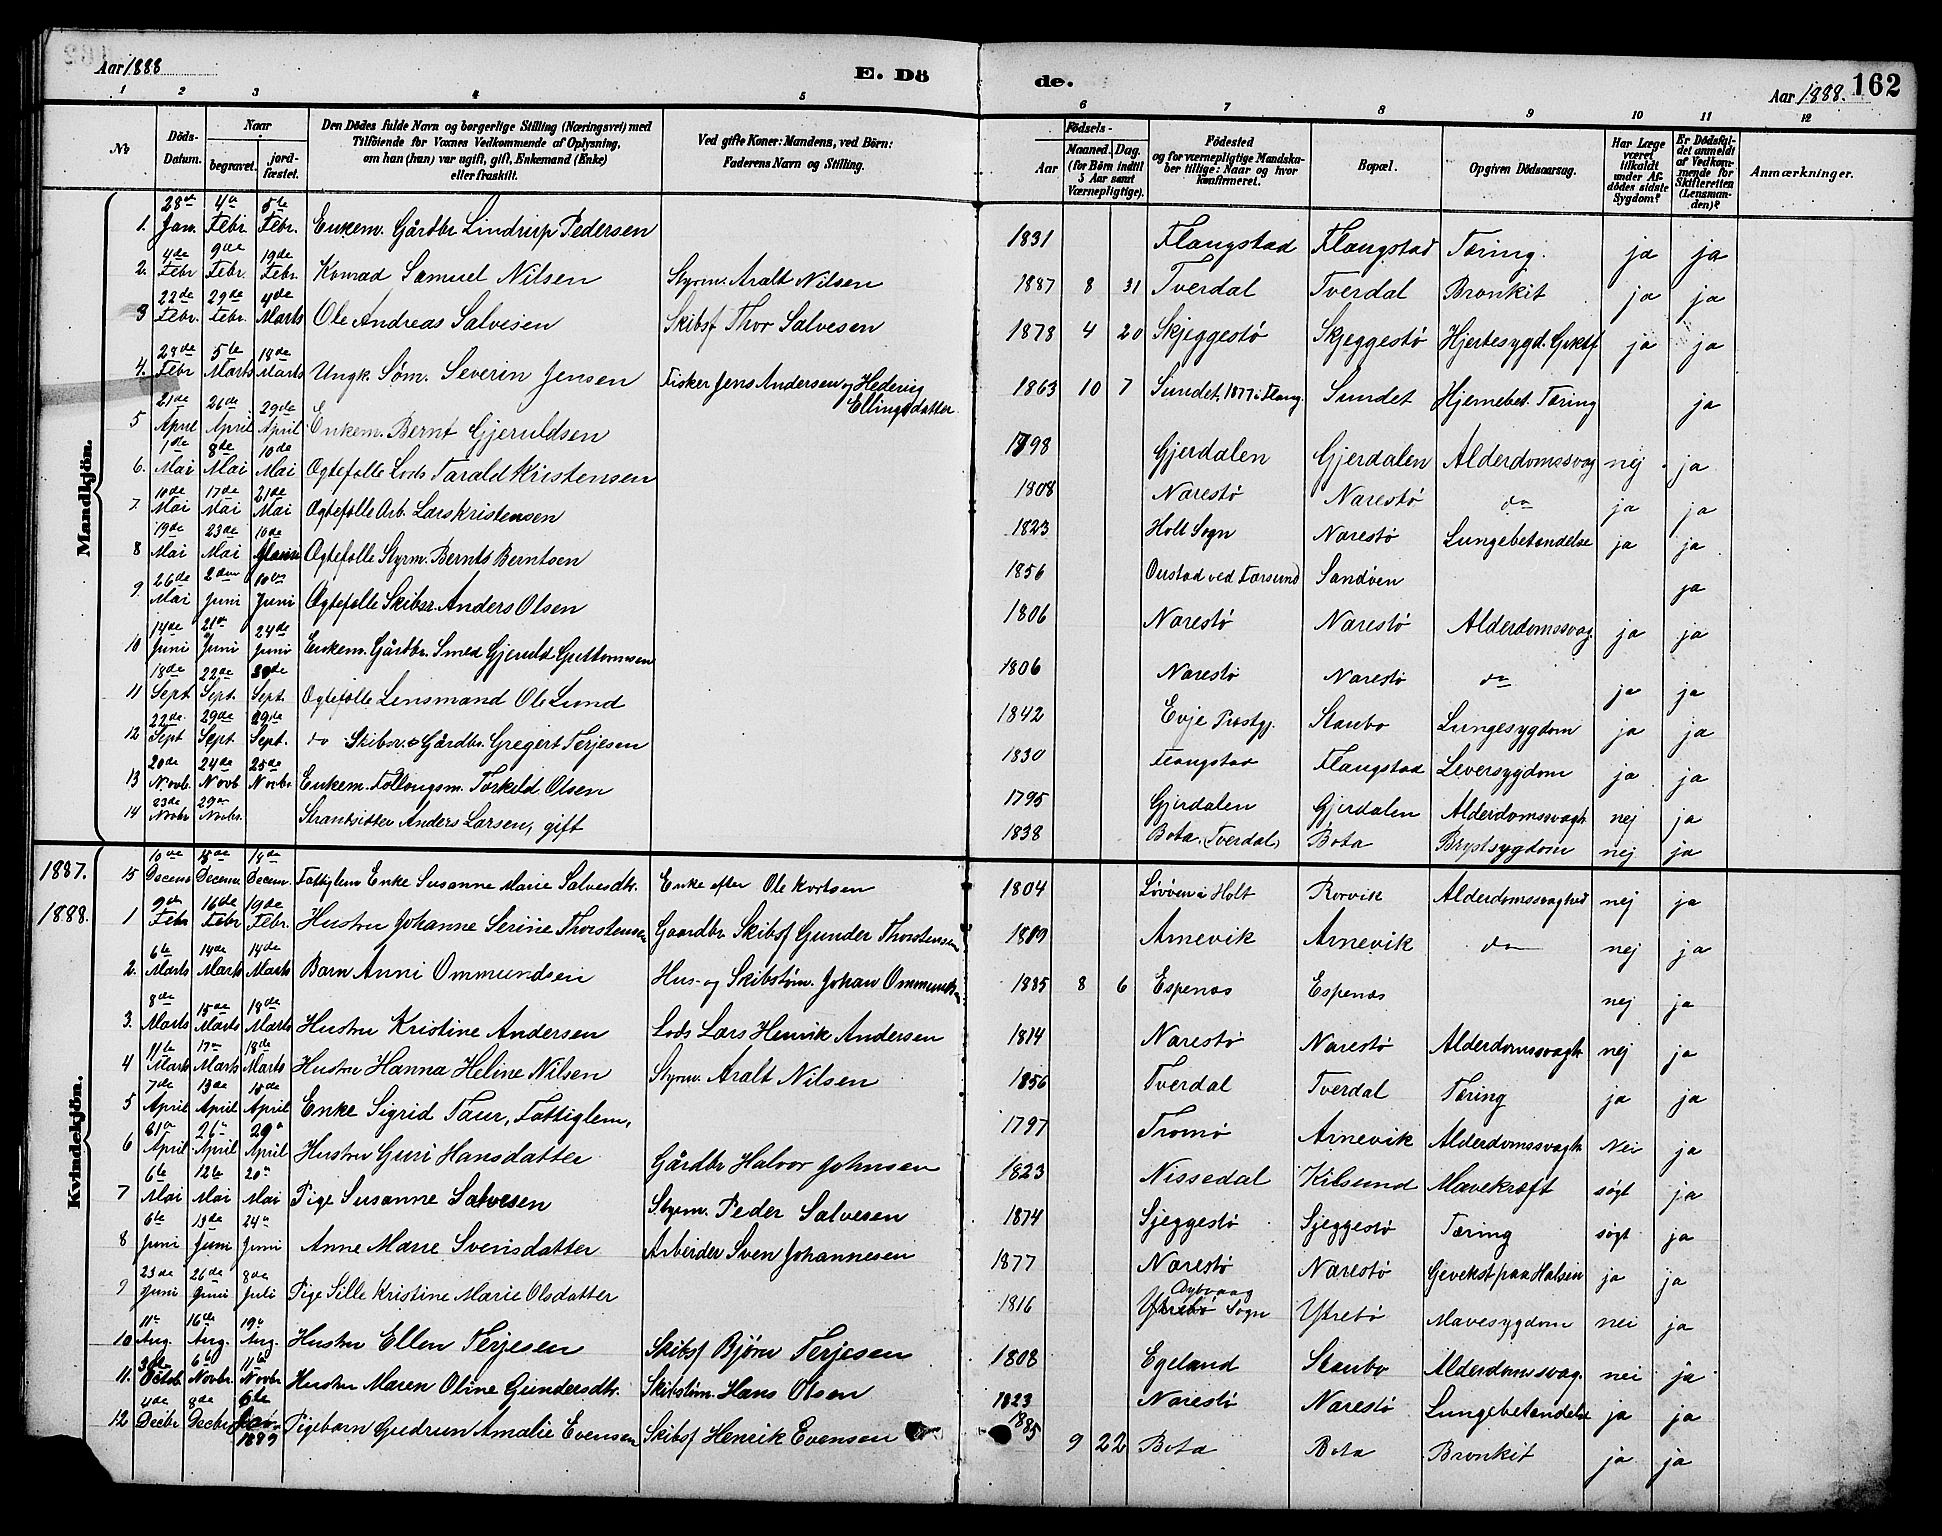 Aar 1888. E. Dö de. Aar 1888. 162
1 2 3 4 5 6 7 8 9 10 11 12
No Döds-Datum. Naar begravet. jord-fæstet. Den Dödes fulde Navn og borgerlige Stilling (Næringsvei) med Tilföiende for Voxnes Vedkommende af Oplysning, om han (hun) var ugift, gift, Enkemand (Enke) eller fraskilt. Ved gifte Koner: Mandens, ved Börn: Faderens Navn og Stilling. Födsels- Aar Maaned. Dag. (for Börn indtil 5 Aar samt Værnepligtige). Födested og for værnepligtige Mandska-ber tillige: Naar og hvor konfirmeret. Bopæl. Opgiven Dödsaarsag. Har Læge været tilkaldt under Af-dödes sidste Sygdom? Er Dödsfal-det anmeldt af Vedkom-mende for Skifteretten (Lensman-den)? Anmærkninger.
Mandkjön.
1. 28de Jan. 4de Febr. 5te Febr. Enkem. Gårdbr. Lindrup Pedersen 1831 Flangstad Flangstad Tæring. ja ja
2. 4de Febr 9de Febr. 19de Febr. Konrad Samuel Nilsen Styrm. Aralt Nilsen 1887 8 31 Tverdal Tverdal Bronkit ja ja
3 22de Febr. 29de Febr. 4de Marts Ole Andreas Salvesen Skibsf Thor Salvesen 1878 4 20 Skjeggestø Skjeggestø Hjertesygd. ja ja
4. 28de Febr 5te Marts 18de Marts Ungk. Søm. Severin Jensen Fisker Jens Andersen og Hedevig Ellingsdatter 1863 10 7 Sundet, 1877 i Flang. Sundet Hjernebet. Tæring ja
5 21de April 26de April 29de April Enkem. Bernt Gjeruldsen 1798 Gjerdalen Gjerdalen Alderdomssvag nej ja
6. 1de Mai 8de Mai 10de Mai Ægtefolle Lods Tarald Kristensen 1808 Narestø Narestø do ja ja
7. 10de Mai 17de Mai 21de Mai Ægtefolle Arb. Lars Kristensen 1823 Holt Sogn Narestø Lungebetændelse ja ja
8 19de Mai 23de Mai 10de Juni Ægtefolle Styrm. Bernts Berntsen 1856 Oustad ved Farsund Sandøen ja
9. 26de Mai 2den Juni 10de Juni Ægtefolle Skibsr. Anders Olsen 1806 Narestø Narestø Alderdomssvag. ja ja
10 14de Juni 21de Juni 24de Juni Enkem. Gårdbr. Smed Gjeruld Guttormsen 1806 Narestø Narestø do ja ja
11 18de Sept. 22de Sept. 30de Sept. Ægtefolle Lensmand Ole Lund 1842 Evje Prestgj. Staubo Lungesygdom ja ja
12 22de Sept 29de Sept 29de Sept. do Skibsr. & Gårdbr. Gregert Terjesen 1830 Flangstad Flangstad Leversygdom ja ja
13 20de Novb. 24de Novb 25de Novbr Enkem. Follougsm. Torkild Olsen 1795 Gjerdalen Gjerdalen Alderdomssvagh nej ja
14 23de Novbr 29de Novbr. Strandsitter Anders Larsen, gift 1838 Bota (Tverdal) Bota Brystsygdom nej ja
Kvindekjön.
1887. 15 10de Decem 15de Decem. 18de Decem. Fattiglem Enke Susanne Marie Salvesdtr. Enke efter Ole Kortsen 1804 Løvøen i Holt Rørvik Alderdomssvaghed nej ja
1888. 1 9de Febr 16de Febr 19de Febr. Hustru Johanne Serine Thorstensen Gaardbr Skibsf Gunder Thorstensen 1809 Arnevik Arnevik do nej ja
2. 6te Marts 14de Marts 14de Marts Barn Anni Ommundsen Hus- og Skibstøm. Johan Ommunds. 1885 8 6 Espenæs Espenæs nej ja
3. 8de Marts 15de Marts 18de Marts Hustru Kristine Andersen Lods Lars Henrik Andersen 1814 Narestø Narestø Alderdomssvagh. nej ja
4 11te Marts 17de Marts 18de Marts Hustru Hanna Heline Nilsen Styrm. Aralt Nilsen 1856 Tverdal Tverdal Tæring ja ja
5 7de April 13de April 15de April Enke Sigrid Taur, Fattiglem, 1797 Tromø Arnevik Alderdomssvagh. Nei ja
6 21de April 26de April 29de April Hustru Guri Hansdatter Gårdbr Halvor Johnsen 1823 Nissedal Kilsund Mavekræft søgt ja
7 6te Mai 12te Mai 20de Mai Pige Susanne Salvesen Styrm. Peder Salvesen 1874 Sjeggestø Sjeggestø Tæring søgt ja
8 6te Juni 13de Juni 24de Juni Anne Marie Svensdatter Arbeider Sven Johannesen 1877 Narestø Narestø Gevekst paa Halsen ja ja
9 23de Juni 26de Juni 8de Juli Pige Sille Kristine Marie Olsdatter 1816 Ytrebø Dybvaag Sogn Ytrebø Mavesygdom nei ja
10 11te Aug. 16de Aug. 19de Aug. Hustru Ellen Terjesen Skibsf Bjørn Terjesen 1808 Egeland Staubo Alderdomssvag. nei ja
11. Octob. 6te Novbr. 11te Novbr. Hustru Maren Oline Gundersdtr. Skibstøm. Hans Olsen 1823 Narestø Narestø Lungebetændelse ja ja
12 4de Decbr 8de Decbr 6te Jan. 1889 Pigebarn Gudrun Amalie Evensen Skibsf Henrik Evensen 1885 9 22 Bota Bota Bronkit ja ja